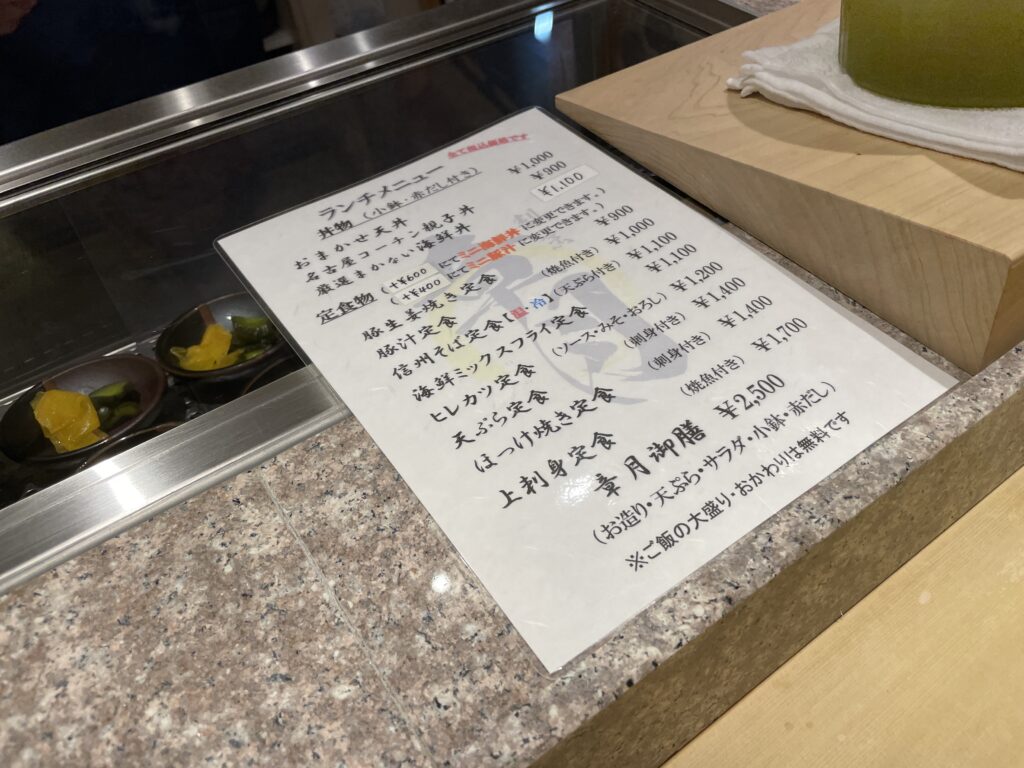 全て税込価格です
ランチメニュー
丼物 (小鉢・赤だし付き)
おまかせ天丼 ¥1,000
名古屋コーチン親子丼 ¥900
厳選まかない海鮮丼 ¥1,100
+¥600 にてミニ海鮮丼に変更できます。)
定食物 +¥400 にてミニ豚汁に変更できます。)
豚生姜焼き定食 ¥900
豚汁定食 (焼魚付き) ¥1,000
信州そば定食【温・冷】(天ぷら付き) ¥1,100
海鮮ミックスフライ定食 ¥1,100
ヒレカツ定食 (ソース・みそ・おろし) ¥1,200
天ぷら定食 (刺身付き) ¥1,400
ほっけ焼き定食 (刺身付き) ¥1,400
上刺身定食 (焼魚付き) ¥1,700
章月御膳 ¥2,500
(お造り・天ぷら・サラダ・小鉢・赤だし)
※ご飯の大盛り・おかわりは無料です